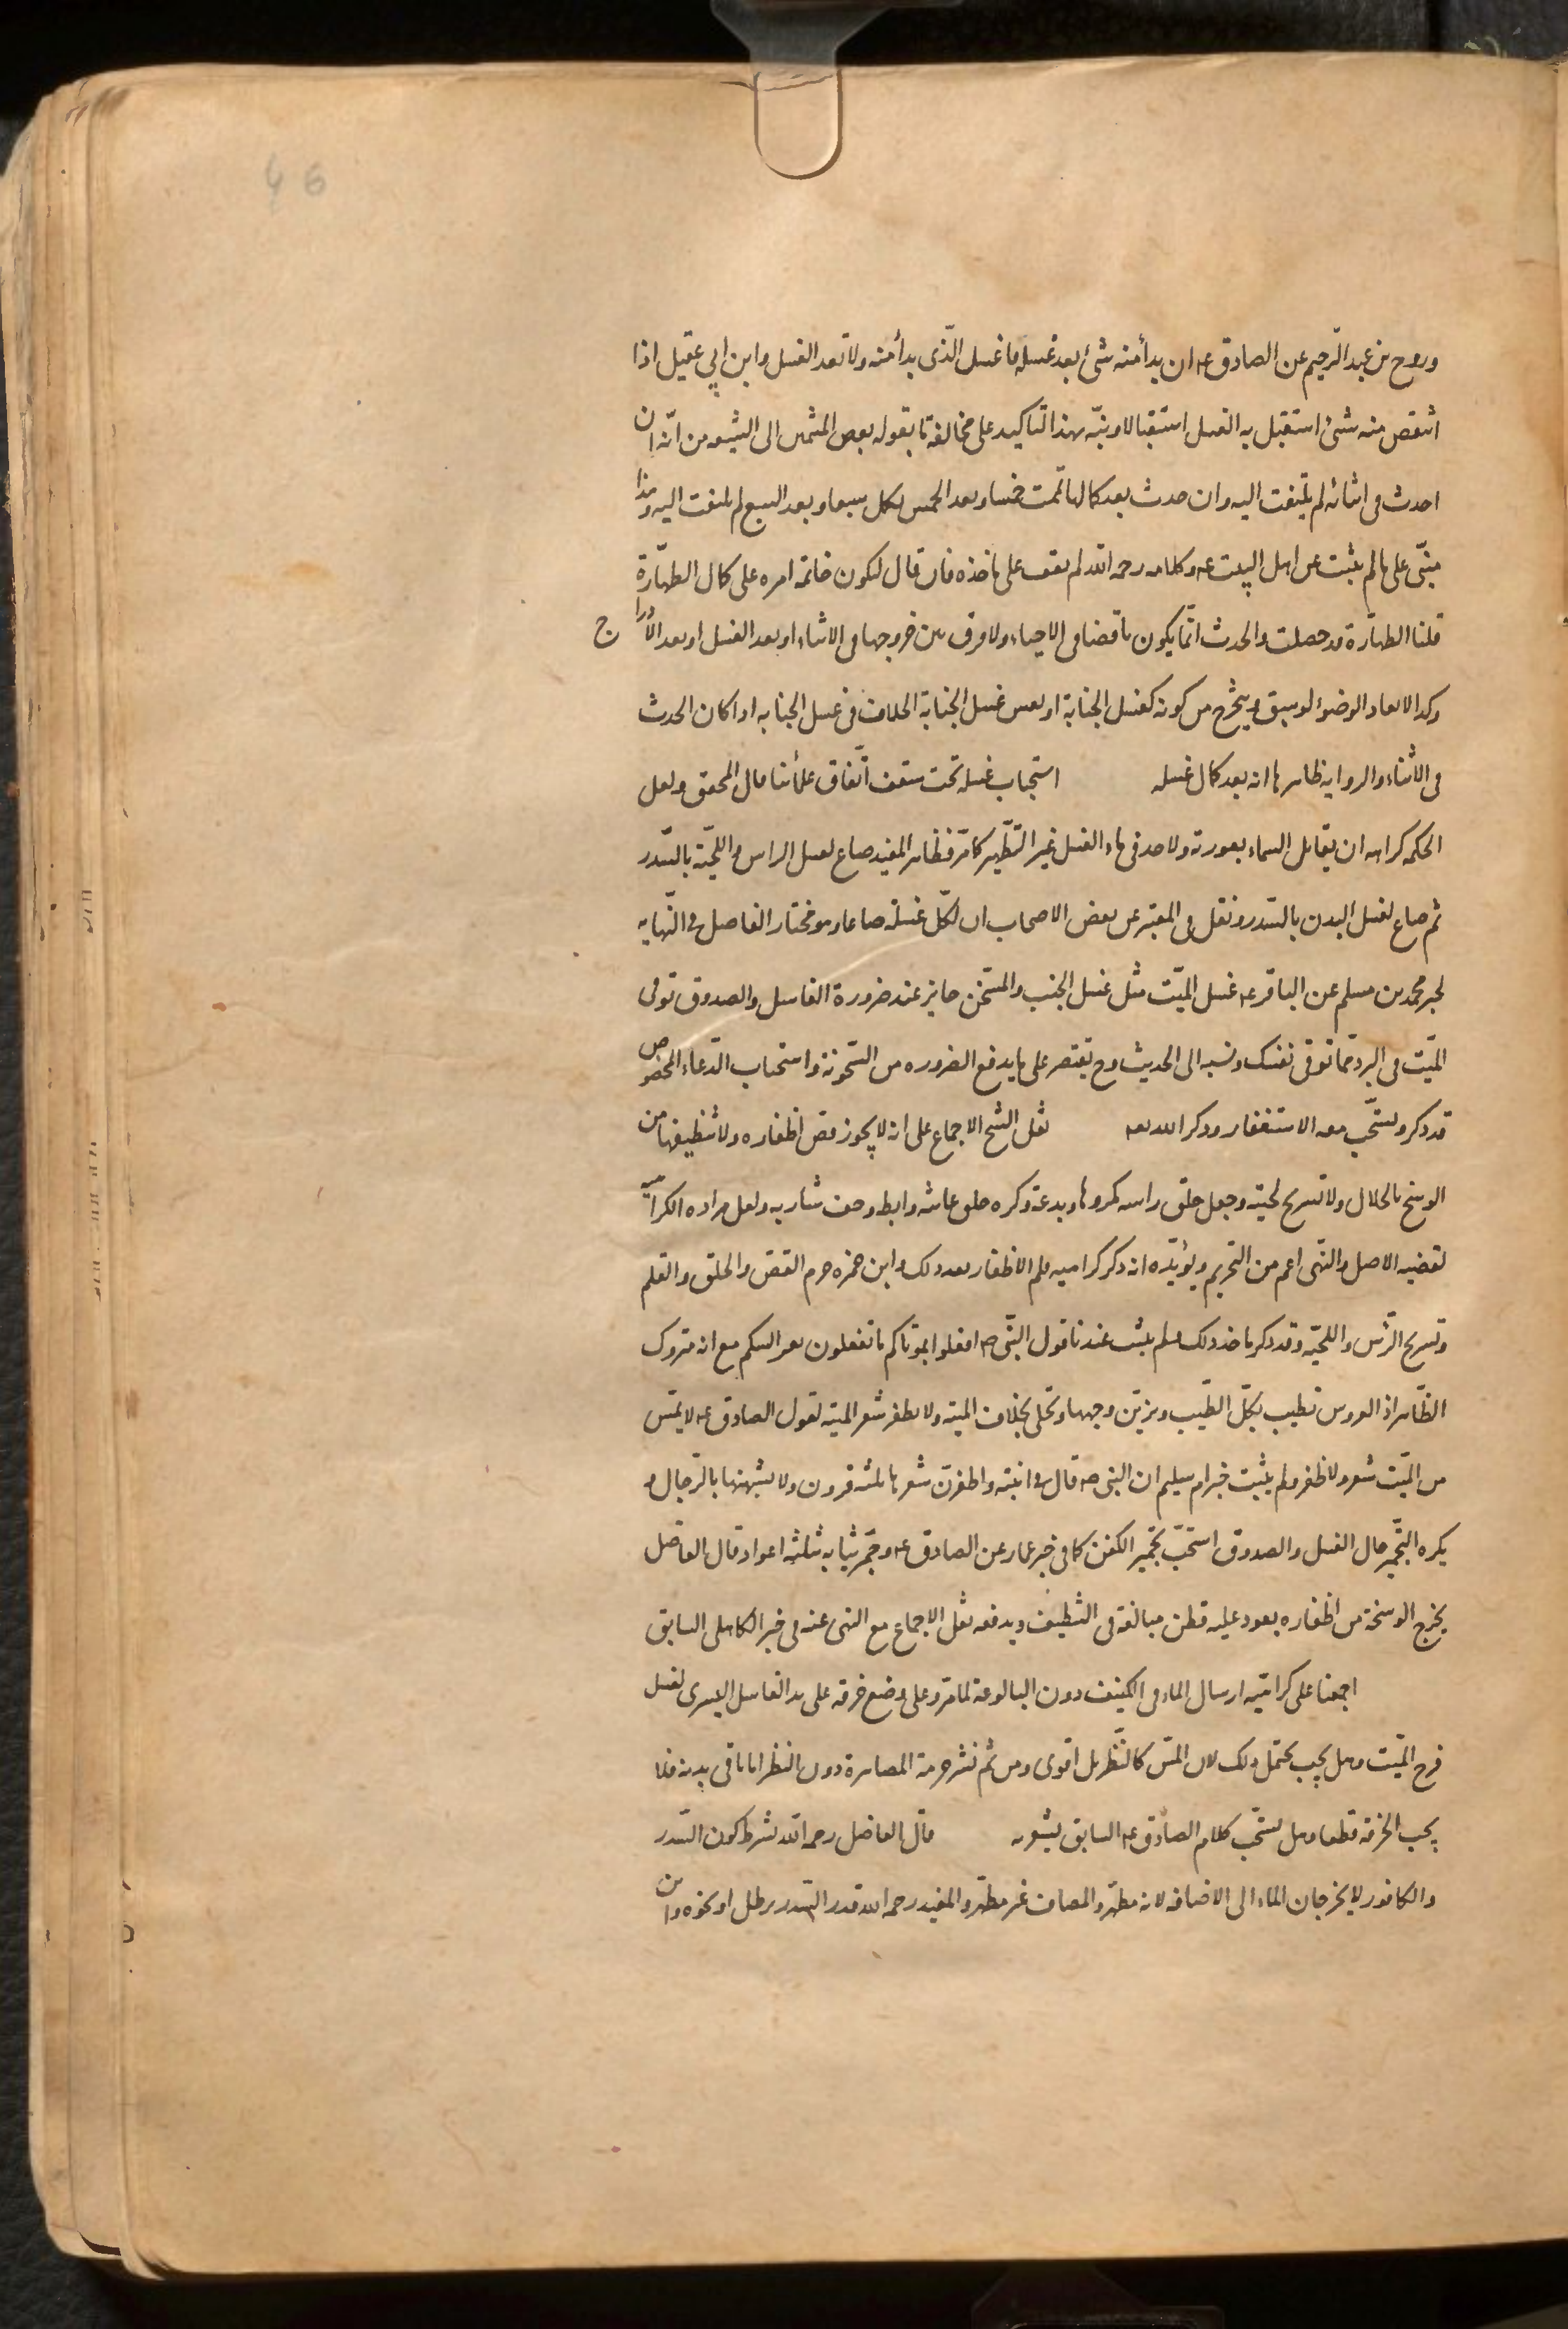 46
وروح بن عبد الرحيم عن الصادق عه ان بدأ منه شئ بعد غسله فاغسل الذى بدأ منه ولا تعد الغسل وابن ابي عقيل اذا
انتقض منه شئ استقبل به الغسل استقبالا ونبّه بهذا التاكيد على مخالفة ما يقوله بعض المتّهمين الى الشيعه من انّه ان
احدث فى اثنائه لم يلتفت اليه وان حدث بعد كمالها تمت خمسا وبعد الخمس يكمل سبعا وبعد السبع لم يلتفت اليه وهذا
مبنّى على ما لم يثبت عن اهل البيت عه وكلامه رحمه الله لم نقف على ماخذه فان قال ليكون خاتمة امره على كمال الطهارة
قلنا الطهارة قد حصلت والحدث انّما يكون ناقضا فى الاحياء ولا فرق بين خروجها فى الاثناء او بعد الغسل او بعد الادراج
وكذا لا يعاد الوضوء لو سبق ويتخرج من كونه كغسل الجنابة او نفس غسل الجنابة الخلاف فى غسل الجنابه اذا كان الحدث
فى الاثناء والرواية ظاهرها انه بعد كمال غسله استحباب غسله تحت سقف اتّفاق علمائنا قال المحقق ولعل
الحكمه كراهه ان يقابل السماء بعورته ولا حد فى ماء الغسل غير التّطهير كما مرّ فظاهر المفيد صاع لغسل الراس واللحية بالسّدر
ثم صاع لغسل البدن بالسدر ونقل فى المعتبر عن بعض الاصحاب ان لكلّ غسلة صاعا وهو مختار الفاضل فى النّهايه
لخبر محمد بن مسلم عن الباقر عه غسل الميّت مثل غسل الجنب والمسّخن جايز عند ضرورة الغاسل والصدوق توقى
الميّت فى البرد ممّا توقى نفسك ونسبه الى الحديث وح يقتصر على ما يدفع الضروره من السّخونة واستحباب الدّعاء المخصوص
قد ذكر ويستّحب معه الاستغفار وذكر الله تعه نقل الشيخ الاجماع على انه لا يجوز قص اظفاره ولا تنظيفها من
الوسخ بالخلال ولا تسريح لحيته وجعل حلق راسه مكروها وبدعة وكره حلق عانته وابطه وحف شاربه ولعل مراده الكراهيه
لقضيه الاصل والنّهى اعم من التحريم ويؤيّده انه ذكر كراهيه قلم الاظفار بعد ذلك وابن حمزه حرم القص والحلق والقلم
وتسريح الرّأس واللحيّه وقد ذكر ماخذ ذلك ولم يثبت عندنا قول النبّى ص افعلوا بموتاكم ما تفعلون بعرايسكم مع انه متروك
الظّاهر اذ العروس تطيب بكلّ الطّيب ويزيّن وجهها وتحلى بخلاف الميته ولا يظفر شعر الميته لقول الصادق عه لا يمّس
من الميّت شعر ولا ظفر ولم يثبت خبر ام سليم ان النبى ص قال فى ابنته واظفرن شعرها ثلثه قرون ولا تشبهنها بالرّجال و
يكره التّجمير حال الغسل والصدوق استحبّ تجمير الكفن كما فى خبر عمار عن الصادق عه وجمّر ثيابه ثلثه اعواد قال الفاضل
يخرج الوسخة من اظفاره بعود عليه قطن مبالغة فى التنظيف ويدفعه نقل الاجماع مع النهى عنه فى خبر الكاهلى السابق
اجمعنا على كراهيّه ارسال الماء فى الكنيف دون البالوعة لما مرّ وعلى وضع خرقه على يد الغاسل اليسرى لغسل
فرج الميّت وهل يجب يحتمل ذلك لان المسّ كالنّظر بل اقوى ومن ثم نشر حرمة المصاهرة دون النظر اما باقى بدنه فلا
يجب الخرقه قطعا وهل يستحّب كلام الصّادق عه السابق يشعر به قال الفاضل رحمه الله نشرط كون السّدر
والكافور لا يخرجان الماء الى الاضافه لانه مطهّر والمضاف غير مطهّر والمفيد رحمه الله قدر السّدر برطل او نحوه وابن